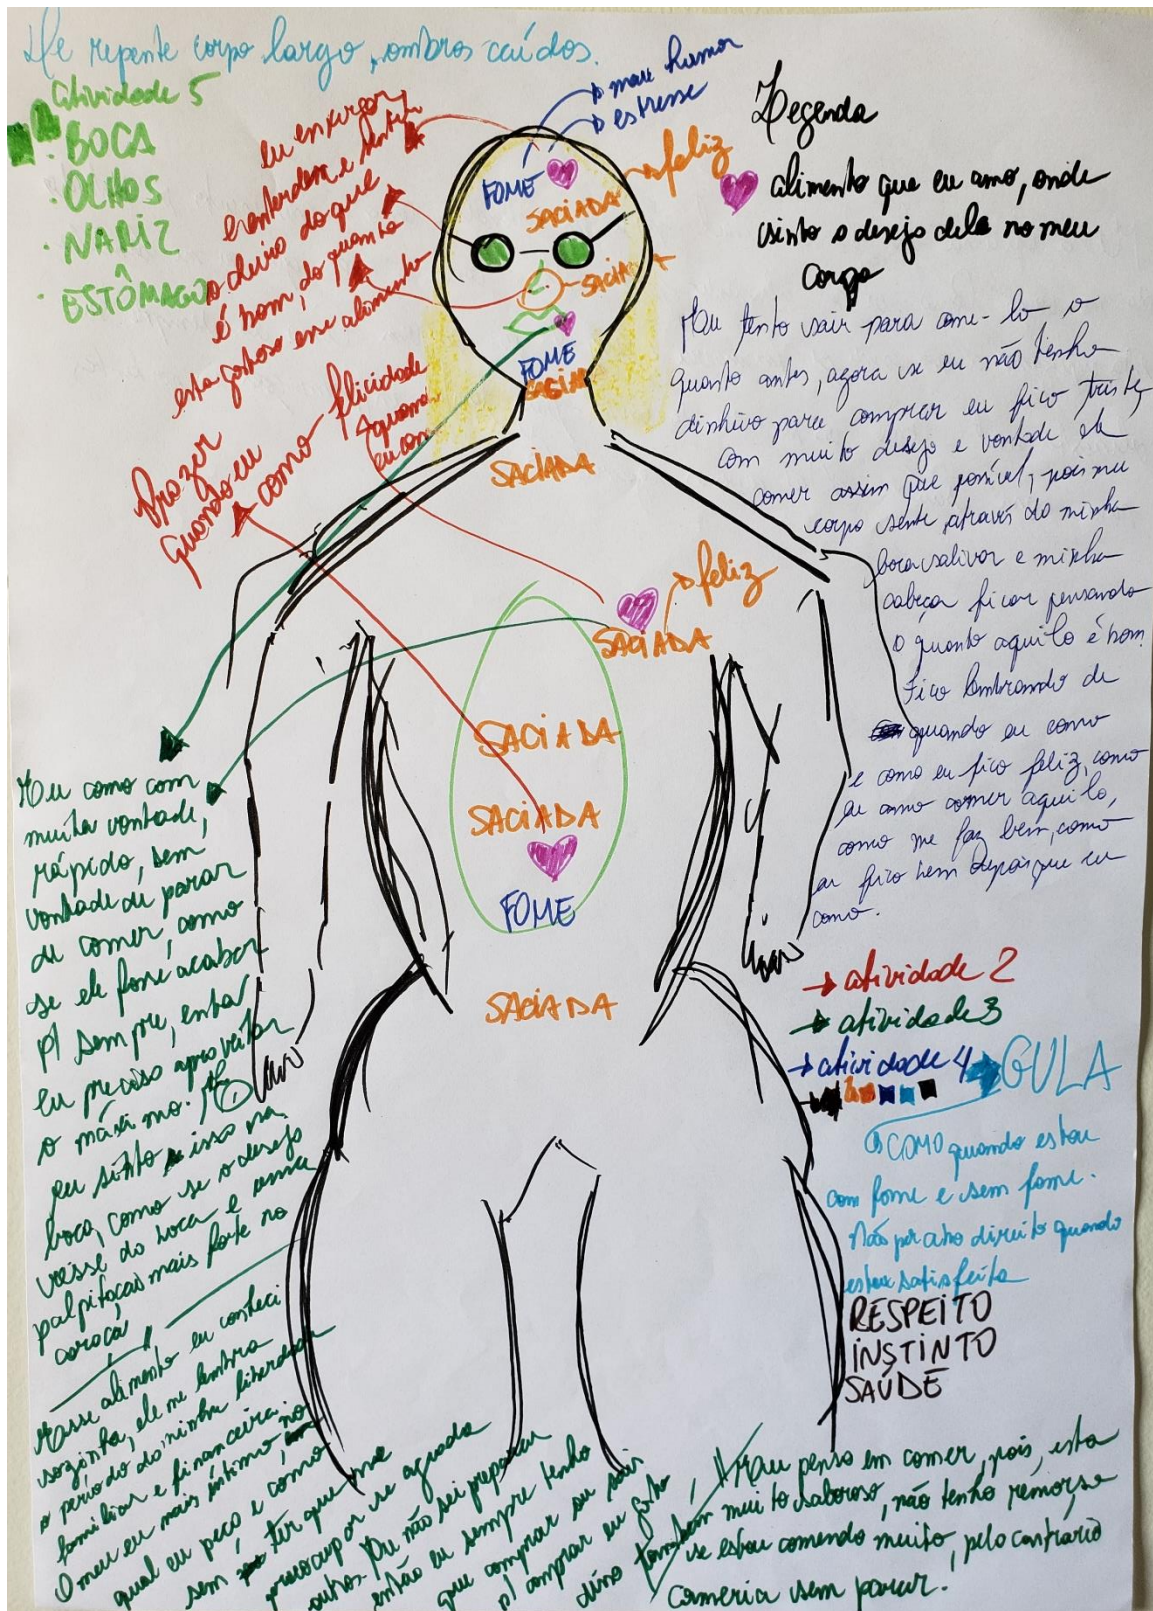 De repente corpo largo, ombros caídos.
Atividade 5
· BOCA
· OLHOS
· NARIZ
· ESTÔMAGO
eu enxergar
e sentir
o cheiro do que
é bom, do quanto
esta gostoso esse alimento
Prazer
quando eu
como
felicidade
quando
eu com
mau humor
estresse
feliz
FOME
SACIADA
SACIADA
FOME
SACIADA
feliz
SACIADA
SACIADA
SACIADA
FOME
SACIADA
Legenda
alimento que eu amo, onde
sinto o desejo dele no meu
corpo
Eu tento sair para come-lo o
quanto antes, agora se eu não tenho
dinheiro para comprar eu fico triste,
com muito desejo e vontade de
comer assim que possível, pois meu
corpo sente, através do minha
boca salivar e minha
cabeça ficar pensando
o quanto aquilo é bom.
Fico lembrando de
quando eu como
e como eu fico feliz, como
eu amo comer aquilo,
como me faz bem, como
eu fico bem depois que eu
como.
atividade 2
atividade 3
atividade 4
GULA
COMO quando estou
com fome e sem fome.
Não paro direito quando
estou satisfeita
RESPEITO
INSTINTO
SAÚDE
Eu como com
muita vontade,
rápido, sem
vontade de parar
de comer, como
se ele fosse acabar
p/ sempre, então
eu preciso aproveitar
o máximo.
eu sinto isso na
boca, como se o desejo
viesse da boca e uma
palpitação mais forte no
coraçã
Esse alimento eu conheci
sozinha, ele me lembra
o período da minha liberdade
familiar e financeira.
O meu eu mais íntimo, no
qual eu peço e como
sem ter que me
preocupar se agrada
outros. Eu não sei preparar
então eu sempre tenho
que comprar ou sair
p/ comprar
// Eu penso em comer, pois, esta
muito saboroso, não tenho remorso
se estou comendo muito, pelo contrário
comeria sem parar.